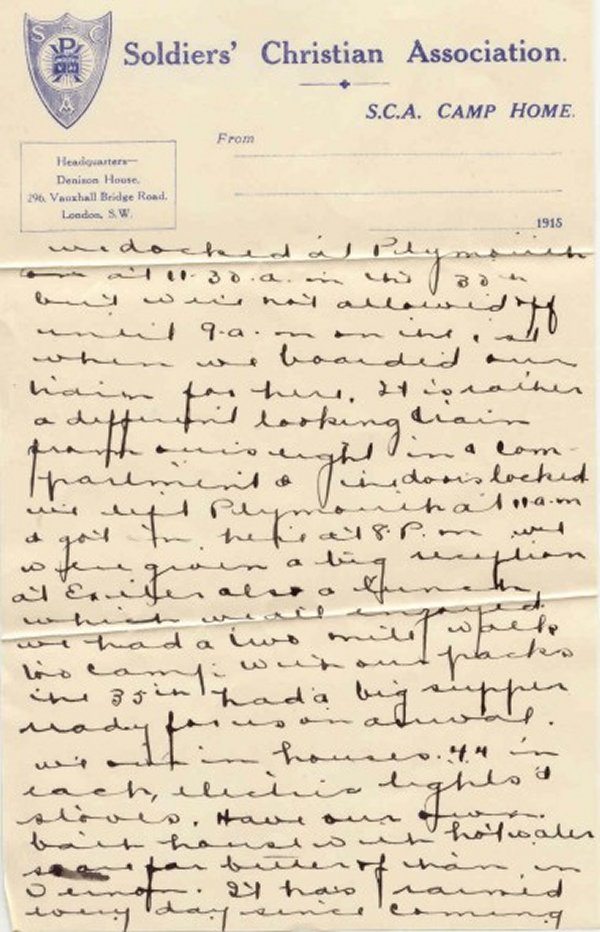 S C A
Soldiers' Christian Association.
S.C.A. CAMP HOME.
From
Headquarters—
Denison House,
296, Vauxhall Bridge Road,
London, S.W.
1915
we docked at Plymouth
at 11.30. a. m the 30th
but were not allowed off
until 9. a. m on the 1st
when we boarded our
train for here. It is rather
a different looking train
from ours eight in a com-
partment & the doors locked
we left Plymouth at 11 a.m
& got in here at 8. P. m we
were given a big reception
at Exeter also a lunch
which we all enjoyed
we had a two mile walk
to camp. with our packs
the 35th had a big supper
ready for us on arrival.
we are in houses. 44 in
each, electric lights &
stoves. Have our own
bath house with hot water
so are far better off than in
Vernon. It has rained
every day since coming